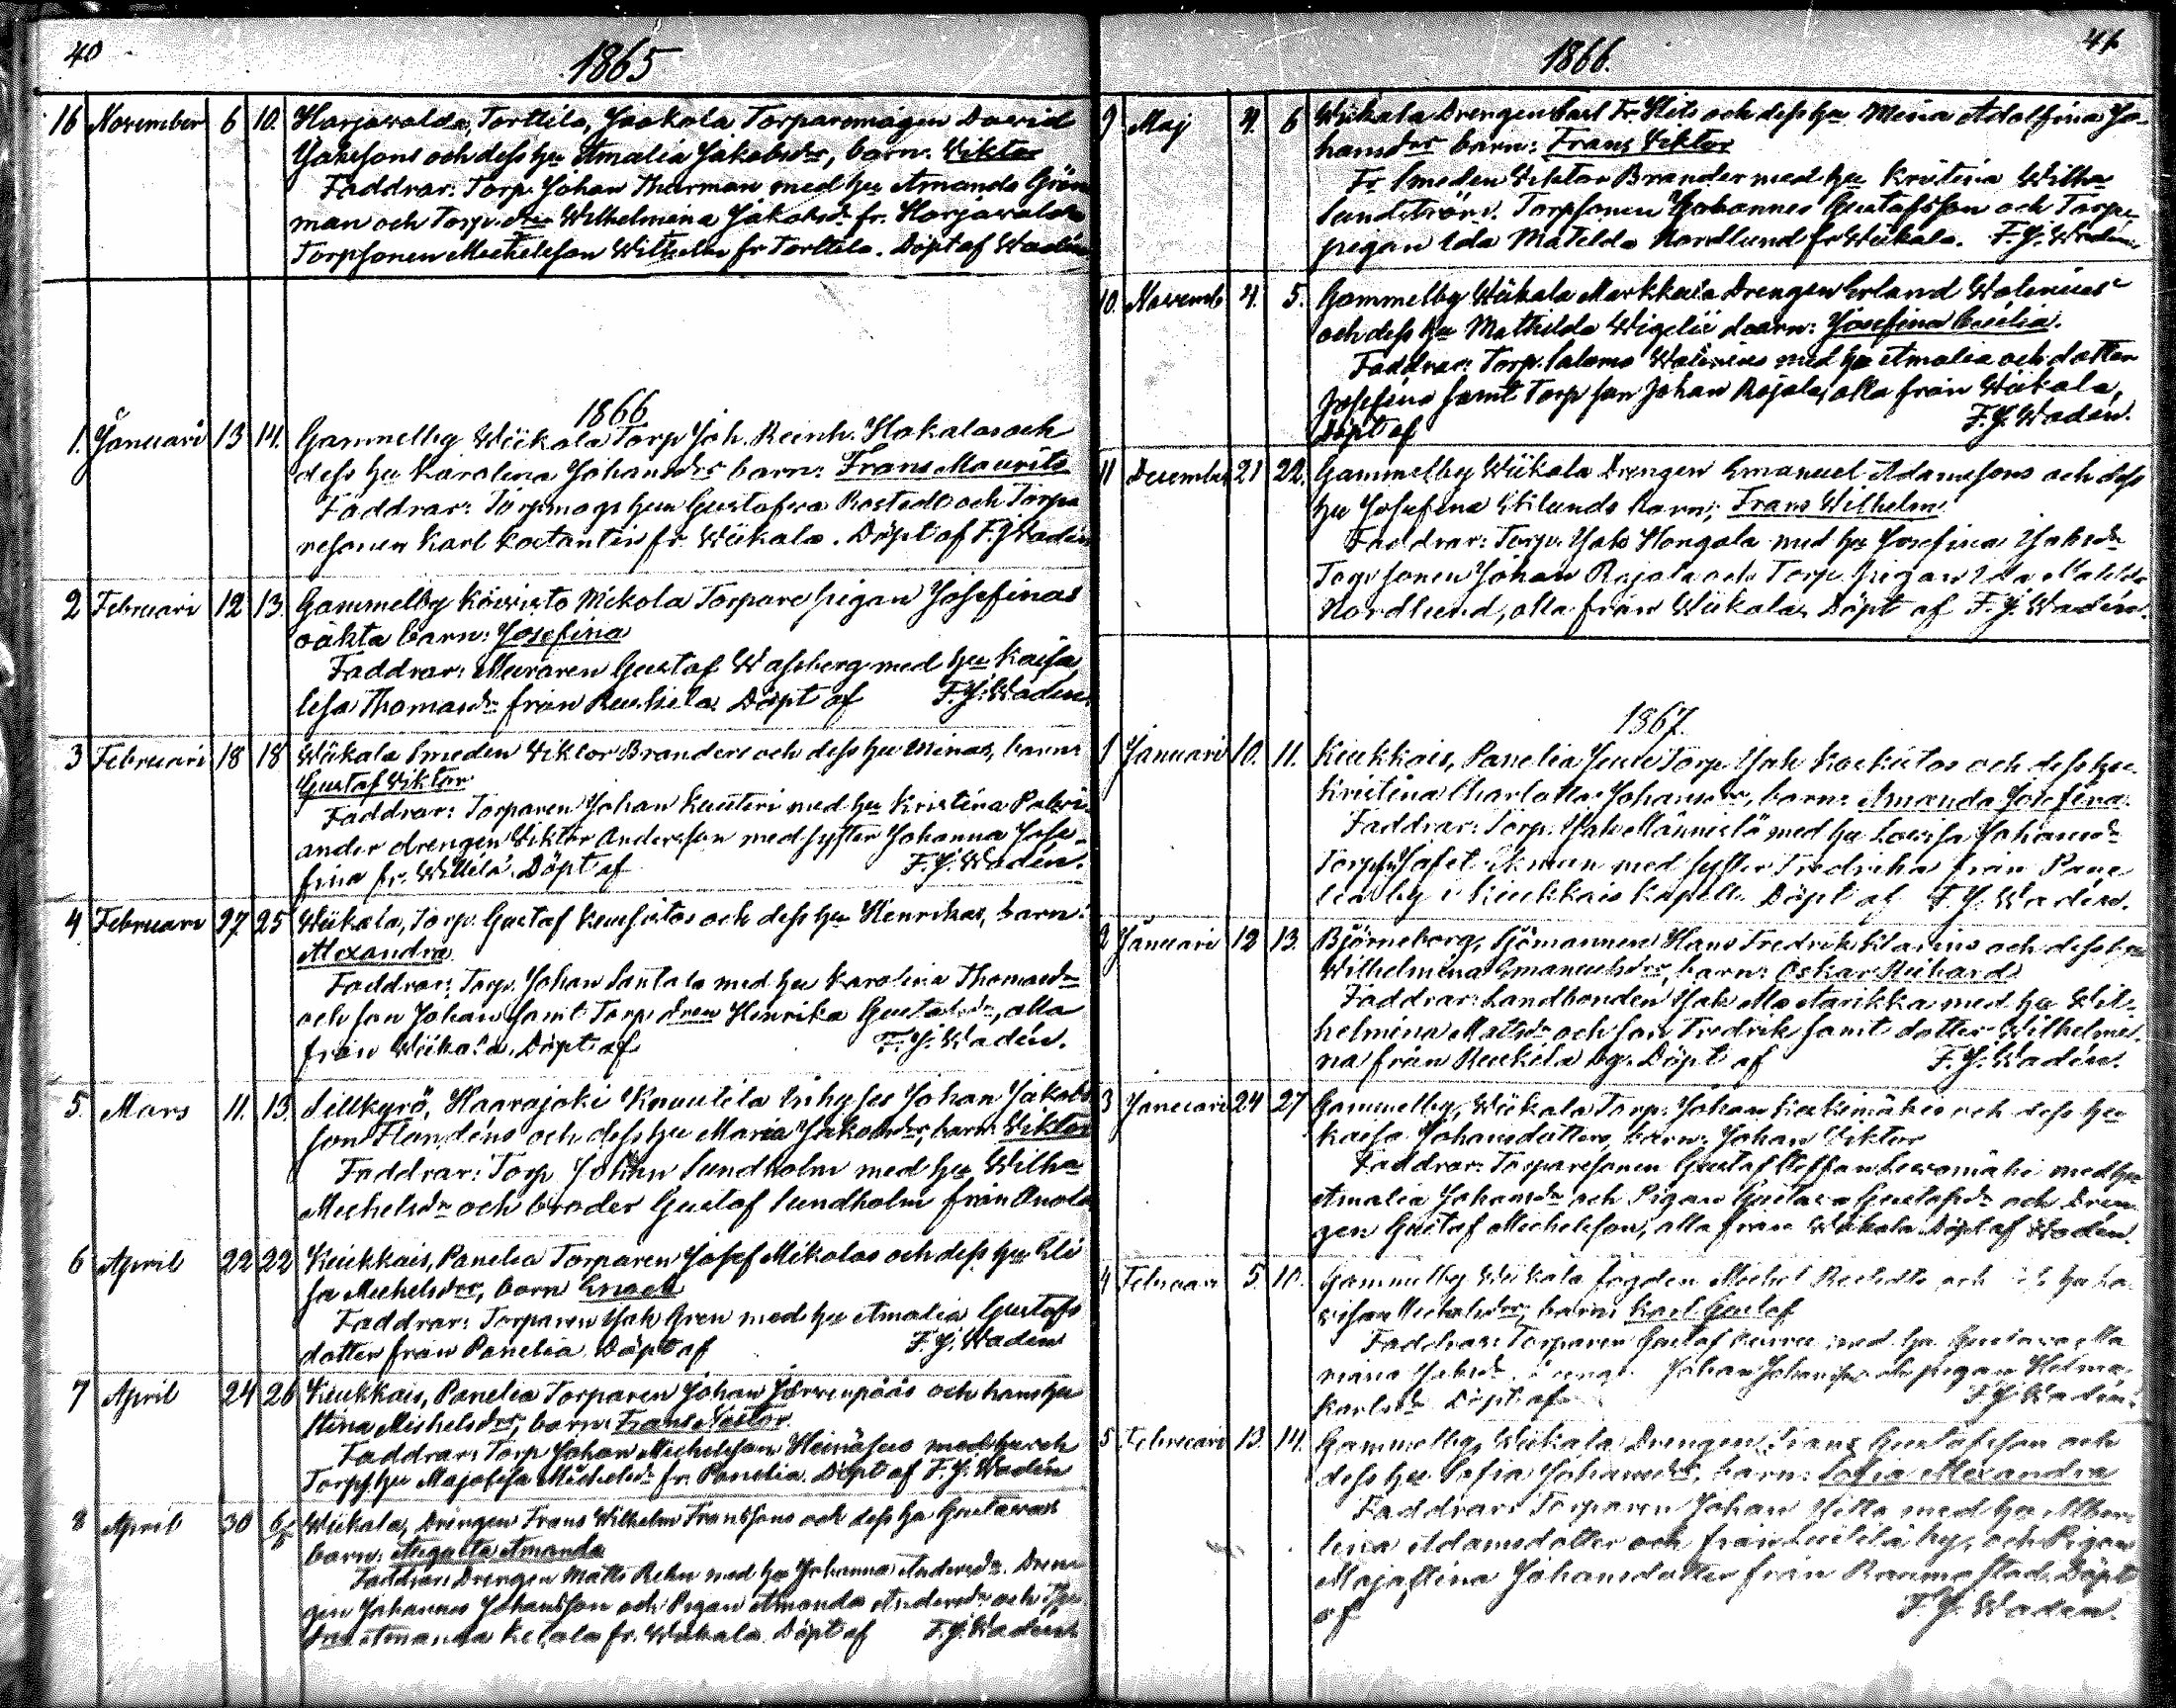 40
1865
16 November 6 10. Harjavalda, Torttila, Jaakola Torparemågen David
Jakessons och dess hu Amalia Jakobsdrs, barn: Viktor
Faddrar: Torp. Johan Thurman med hu Amanda Grön
man och Torp. Wilhelmina Jakobsdr fr. Harjavalda
Torpsonen Michelsson Wilhelm fr Torttila. Döpt af Wadén
1866
1. Januari 13 14. Gammelby Wiikala Torp Joh. Reinh. Hakalas och
dess hu Karolina Johansdrs barn: Frans Maurits
Faddrar: Torpmågs hun Gustafva Rostedt och Torpa
resonen Karl Kostantin fr. Wiikala. Döpt af F. J. Wadén
2 Februari 12 13. Gammelby Köivisto Mikola Torpare pigan Josefinas
oäkta barn: Josefina
Faddrar: Muraren Gustaf Wassberg med hu Kaisa
Lisa Thomasdr från Döpt af F. J. Wadén
3 Februari 18 18 Wiikala Smeden Viktor Branders och dess hu Minas, barn:
Gustaf Viktor
Faddrar: Torparen Johan Kauteri med hu Kristina Palvi
ander drengen Viktor Andersson med syster Johanna Jose
fina fr. Döpt af F. J. Wadén.
4 Februari 27 25 Wiikala, Torp. Gustaf och dess hu Henrikas, barn:
Alexandra
Faddrar: Torp. Johan Santala med hu Karolina Thomasdr
och son Johan samt Torp. dren Henrika Gustafsdr, alla
från Wiikala. Döpt af F. J. Wadén.
5. Mars 11. 13. Sillkyrö, Haarajoki Knuutila Inhyses Johan Jakobs
son Flandéns och dess hu Maria Jakobsdrs, barn: Viktor
Faddrar: Torp Johan Sundholm med hu Wilha
Michelsdr och broder Gustaf Sundholm från Anola
6 April 22 22 Kiukkais, Panelia Torparen Josef Mikolas och dess hu Eli
sa Michelsdrs, barn Enock
Faddrar: Torparen Jak Gren med hu Amalia Gustafs
dotter från Panelia Döpt af F. J. Wadén
7 April 24 26 Kiukkais, Panelia Torparen Johan Järvenpääs och hans hu
Stina Michelsdrs, barn: Frans Nestor
Faddrar: Torp Johan Michelsson med hu och
Torps. hu Majalisa Michelsdr fr. Panelia. Döpt af F. J. Wadén
8 April 30 6/5 Wiikala, Drengen Frans Wilhelm Franssons och dess hu Gustavas
barn: Augusta Amanda
Faddrar: Drengen Matts Rehn med hu Johanna Andersdr. Dren
gen Johannes Johansson och Pigan Amanda Andersdr och
Amanda fr. Wiikala Döpt af F. J. Wadén
1866.
41
9 Maj 4. 6 Wiikala Drengen Carl Fr. och dess hu Maria Adolfina Jo
hansdrs barn: Frans Viktor
Fr. Smeden Viktor Brander med hu Kristina Wilha
Sundström. Torpsonen Johannes Gustafsson och Torp
pigan Ida Matilda Nordlund fr Wiikala. F. J. Wadén
10. Novemb 4. 5. Gammelby Wiikala Markkula Drengen Erland Walenius
och dess hu Mathilda barn: Josefina Cecilia.
Faddrar: Torp. Salomo Walenius med hu Amalia och dotter
Josefina samt Torp son Johan Rajala, alla från Wiikala,
Döpt af F. J. Wadén.
11 December 21 22. Gammelby Wiikala Drengen Emanuel Adamssons och dess
hu Josefina Eklunds Barn; Frans Wilhelm
Faddrar: Torp. Jak Hongola med hu Josefina Jaksdr
Torp sonen Johan Rajala och Torp. pigan Ida Matilda
Nordlund, alla från Wiikala. Döpt af F. J. Wadén.
1867.
1 Januari 10. 11. Kiukkais, Panelia Torp. Jak och dess hu
Kristina Charlotta Johansdrs, barn: Amanda Josefina.
Faddrar: Torp. Jak Männistö med hu Lovisa Johansdr
Torps. Jafet Ekman med syster Fredrika från Pane
lia by i Kiukkais Kapell. Döpt af F. J. Wadén.
2 Januari 12 13. Björneborg, Sjömannen Hans Fredrik och dess hu
Wilhelmina Emanuelsdrs, barn: Oskar Richard
Faddrar: Landbonden Jak med hu Wil
helmina Matsdr och son Fredrik samt dotter Wilhelmi
na från by. Döpt af F. J. Wadén.
3 Januari 24 27 Gammelby, Wiikala Torp. Johan och dess hu
Kaisa Johansdotters, barn: Johan Viktor
Faddrar: Torparesonen Gustaf Steffan med hu
Amalia Johansdr och Pigan Gustava Gustafsdr och Dren
gen Gustaf Michelsson, alla från Wiikala Döpt af Wadén.
4 Februari 5. 10. Gammelby Wiikala fogden Michel och hu
Michelsdrs, barn: Karl Gustaf
Faddrar: Torparen Gustaf med hu Gustava Ma
riana Johan Johansson och pigan Helma
Karlsdr Döpt af F. J. Wadén.
5 Februari 13. 14. Gammelby, Wiikala Drengen Frans Gustafsson och
dess hu Sofia Johansdrs, barn: Sofia Alexandra
Faddrar: Torparen Johan med hu Alber
tina Adamsdotter och från by, och Pigan
Majastina Johansdotter från Raumo stad. Döpt
af F. J. Wadén.